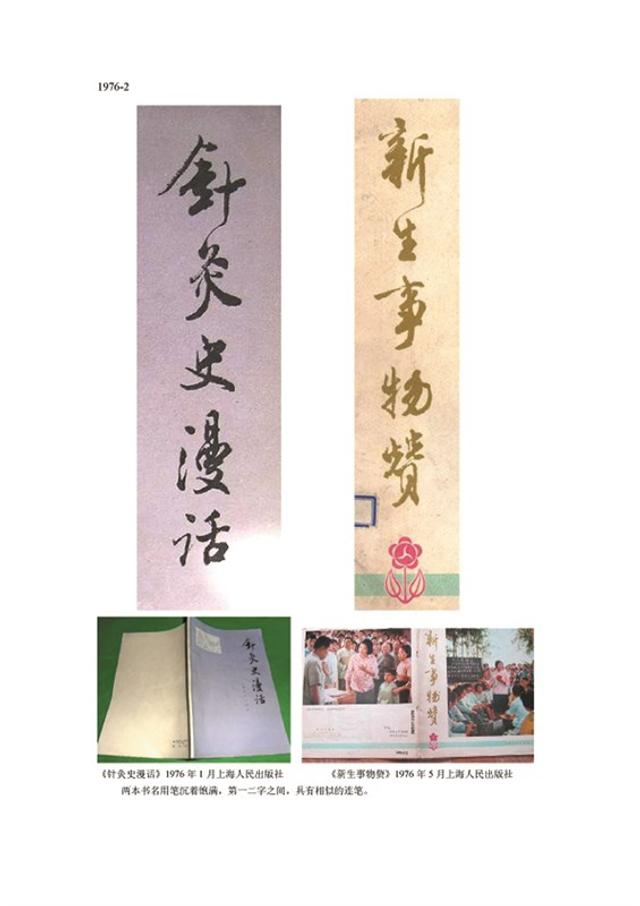 1976-2
针灸史漫话
新生事物赞
针灸史漫话
新生事物赞
《针灸史漫话》1976 年 1 月上海人民出版社
《新生事物赞》1976 年 5 月上海人民出版社
两本书名用笔沉着饱满，第一二字之间，具有相似的连笔。